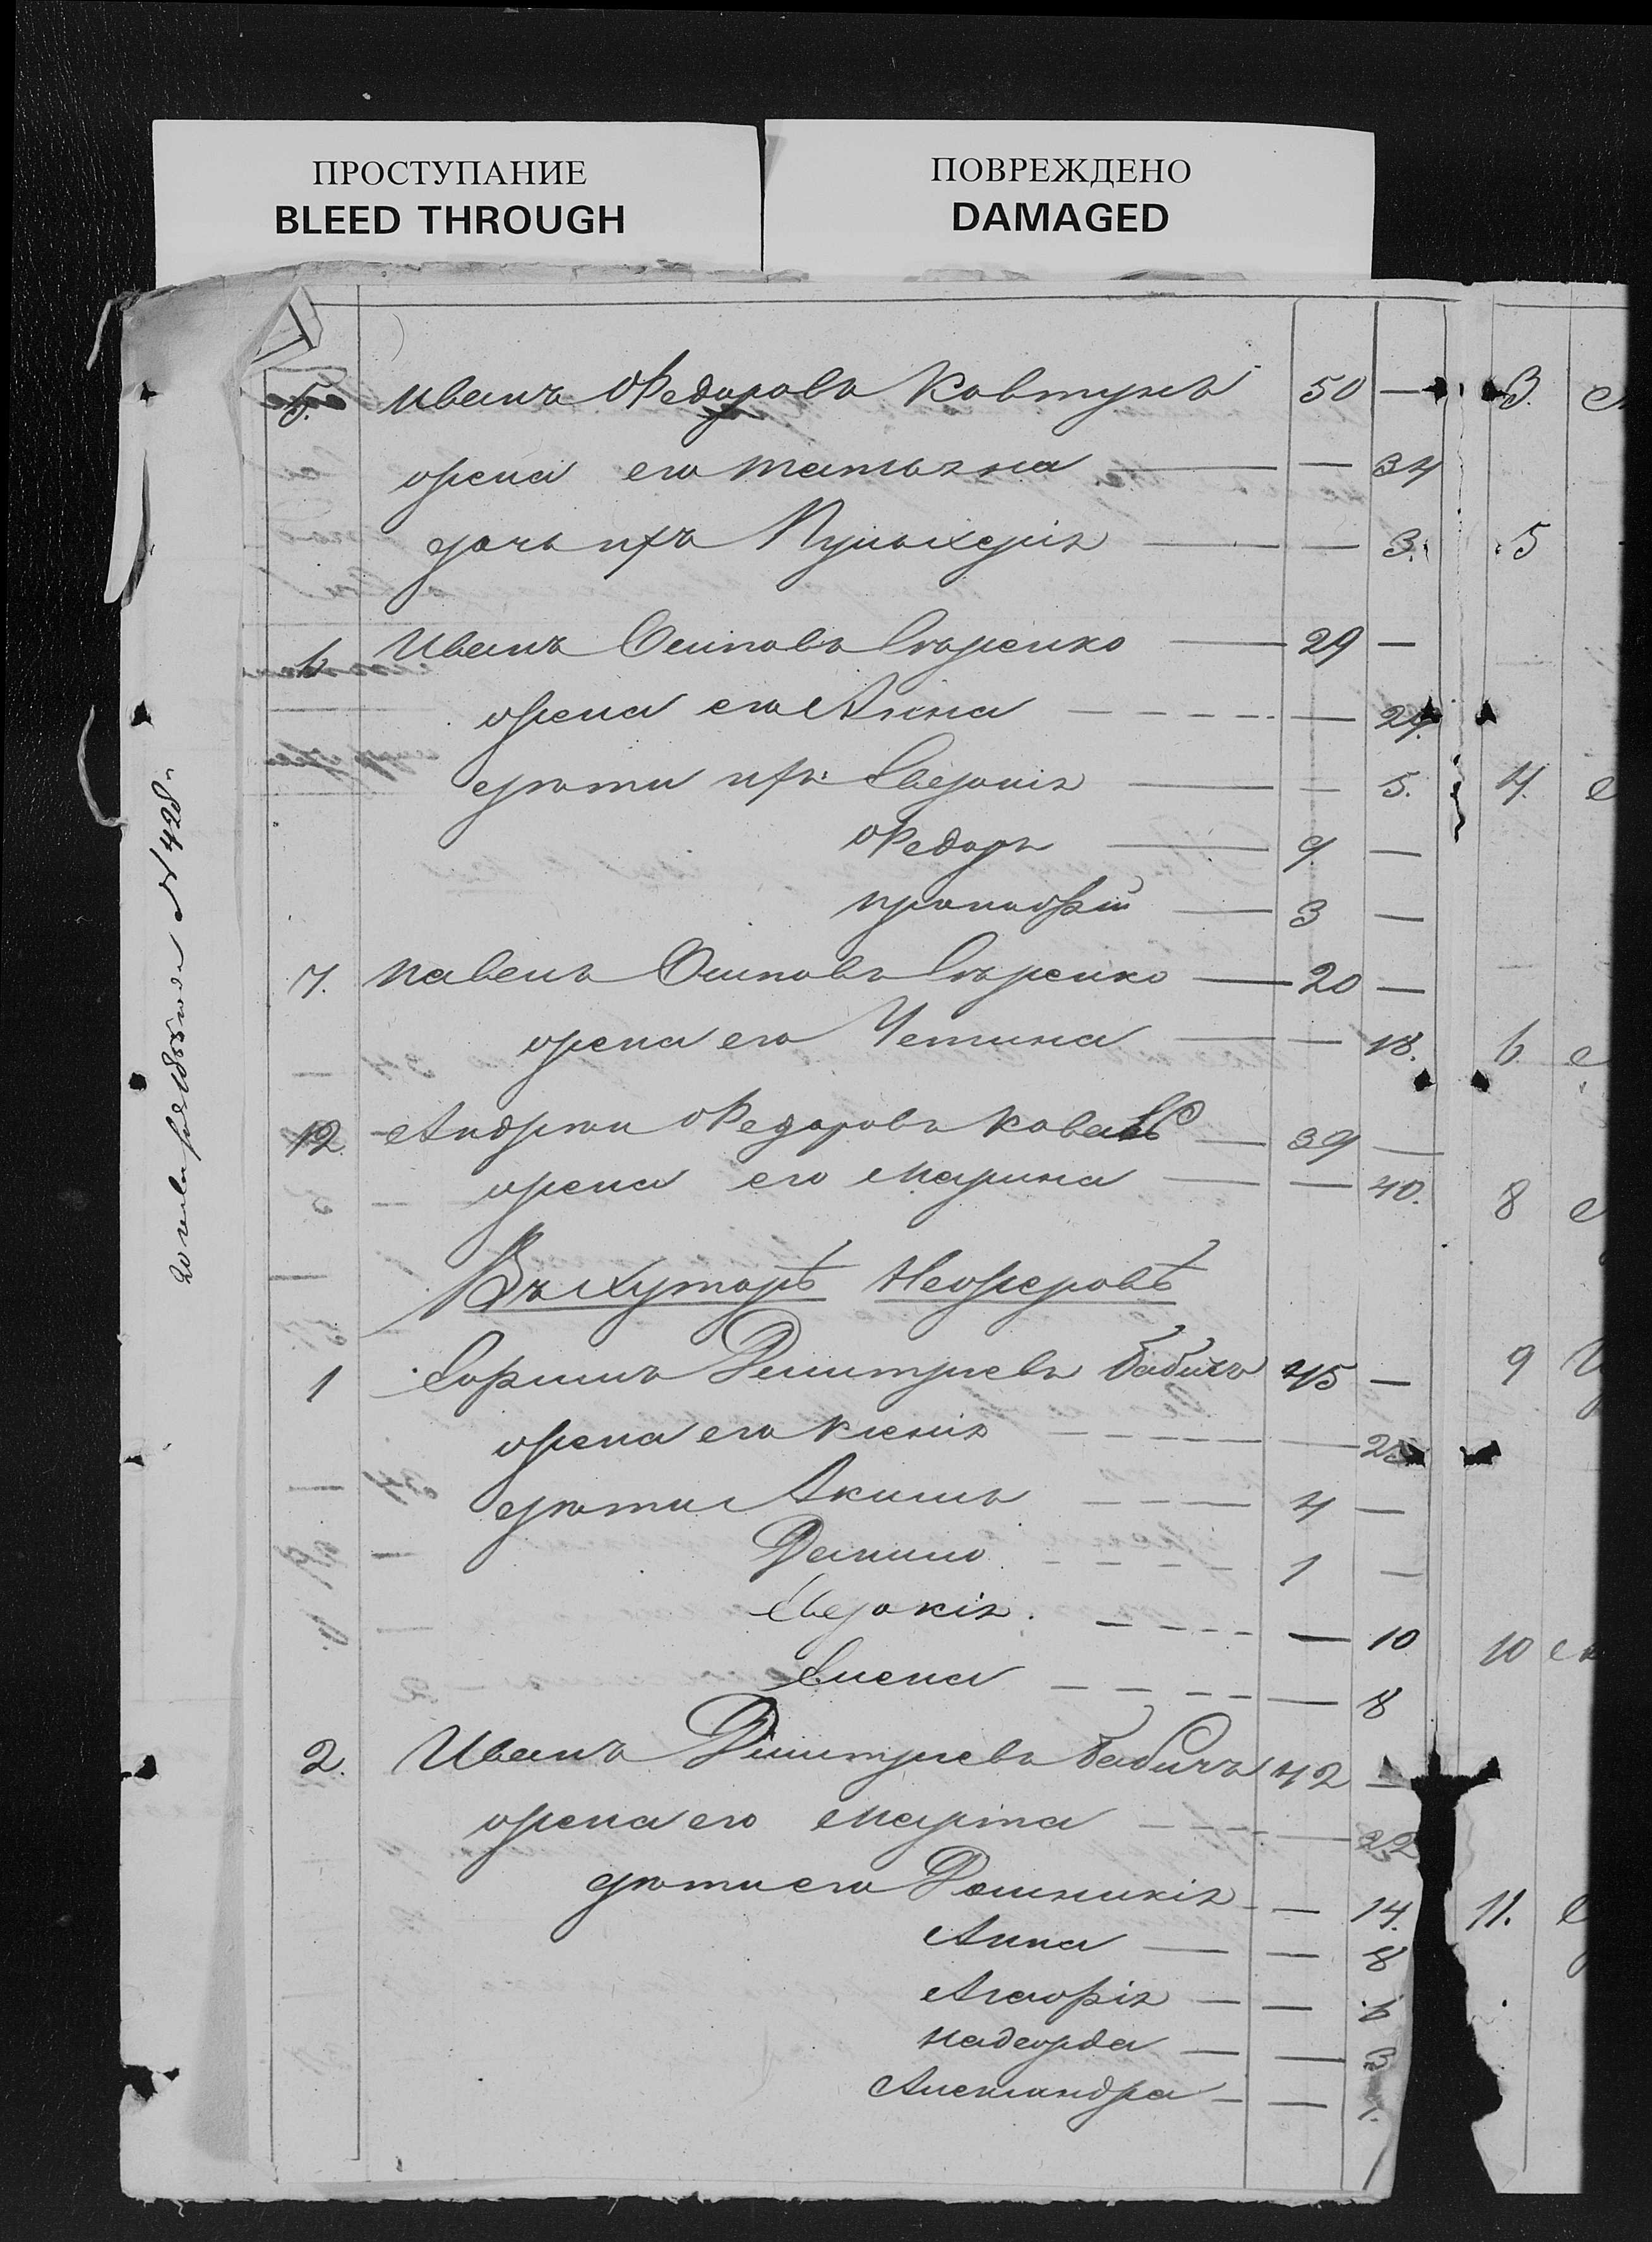 ПРОСТУПАНИЕ
BLEED THROUGH
ПОВРЕЖДЕНО
DAMAGED
5. Иванъ Ѳедоровъ Ковтунъ 50 —
жена его Татьяна — 34
дочь ихъ Пульхерія — 3.
6 Иванъ Осиповъ 29 —
жена его Анна — 24
дѣти ихъ: Евдокія — 5.
Ѳедоръ 9 —
Прокофій 3 —
7. Павелъ Осиповъ 20 —
жена его Устина — 18.
12 Андрей Ѳедоровъ Коваль 39 —
жена его Марина — 40.
Въ хуторѣ
1 Ефимъ Дмитріевъ Бабичъ 45 —
жена его Ксенія —
дѣти Акимъ 4 —
Данило 1 —
Евдокія. — 10
Елена — 8
2. Иванъ Дмитріевъ Бабичъ 42 —
жена его Марта — 22
дѣти его Домникія — 14.
Анна — 8
Агафія — 6
Надежда — 3
Александра — 1.
3.
5
4.
6.
8
9
10
11.
№ 428